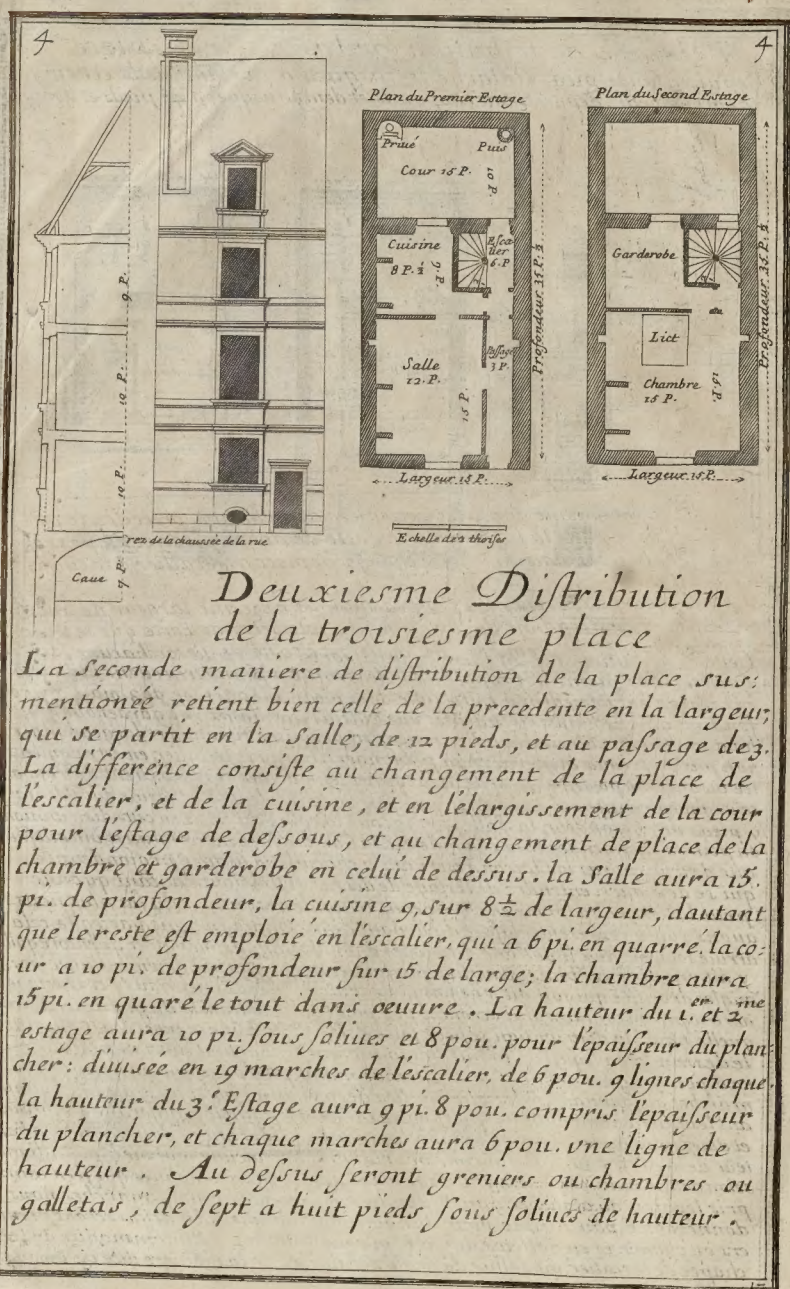 4
4
Plan du Premier Estage
Plan du Second Estage
Priué
Puis
Cour 15 P.
10 P.
Cuisine
8 P. ½
9 P.
Escalier
6 P
Garderobe
Profondeur 35 P. ½
Profondeur 35 P. ½
9 P.
10 P.
10 P.
Salle
12. P.
15 P.
Passage
3 P.
Lict
Chambre
15 P.
15 P.
Largeur 15 P.
Largeur 15 P.
rez de la chaussée de la rue
Echelle de 2 thoises
Caue
7 P.
Deuxiesme Distribution
de la troisiesme place
La seconde maniere de distribution de la place sus:
mentionée retient bien celle de la precedente en la largeur,
qui se partit en la Salle, de 12 pieds, et au passage de 3.
La différence consiste au changement de la place de
l'escalier, et de la cuisine, et en l'élargissement de la cour
pour l'estage de dessous, et au changement de place de la
chambre et garderobe en celui de dessus. la Salle aura 15.
pi. de profondeur, la cuisine 9, sur 8 ½ de largeur, dautant
que le reste est emploié en l'escalier, qui a 6 pi. en quarré. la co:
ur a 10 pi. de profondeur sur 15 de large; la chambre aura
15 pi. en quaré le tout dans oeuure. La hauteur du 1.er et 2.me
estage aura 10 pi. sous soliues et 8 pou. pour l'épaisseur du plan:
cher: diuisée en 19 marches de l'escalier, de 6 pou. 9 lignes chaque.
la hauteur du 3.e Estage aura 9 pi. 8 pou. compris l'épaisseur
du plancher, et chaque marches aura 6 pou. vne ligne de
hauteur. Au dessus seront greniers ou chambres ou
galletas, de sept a huit pieds sous soliues de hauteur.